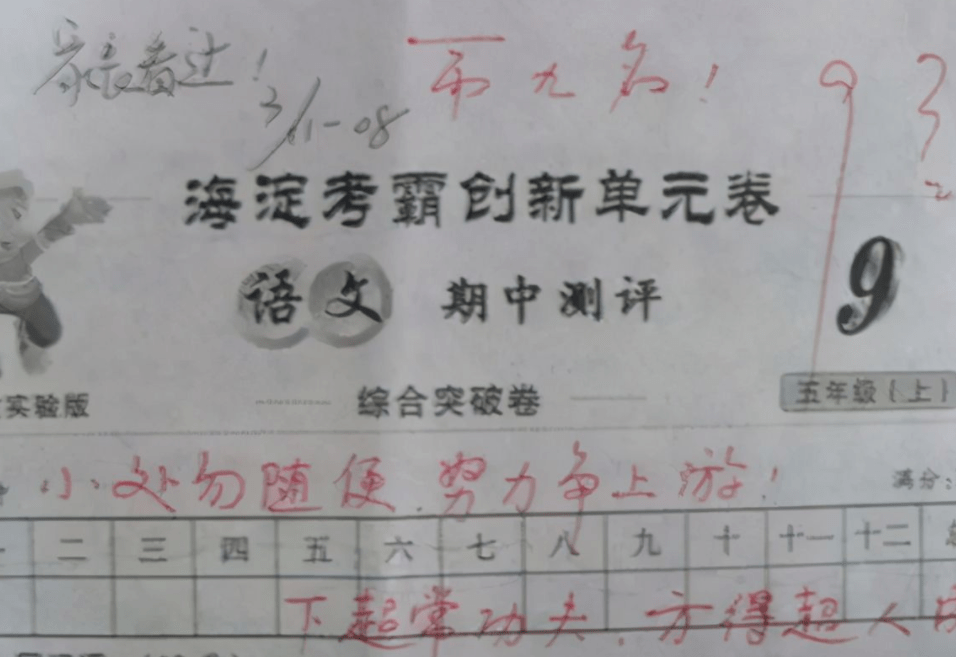 家长看过！
3/11-08
第九名！
93
海淀考霸创新单元卷
语文 期中测评
9
实验版
综合突破卷
五年级（上）
小处勿随便，努力争上游！
满分：
二 三 四 五 六 七 八 九 十 十一 十二
下超常功夫，方得超人